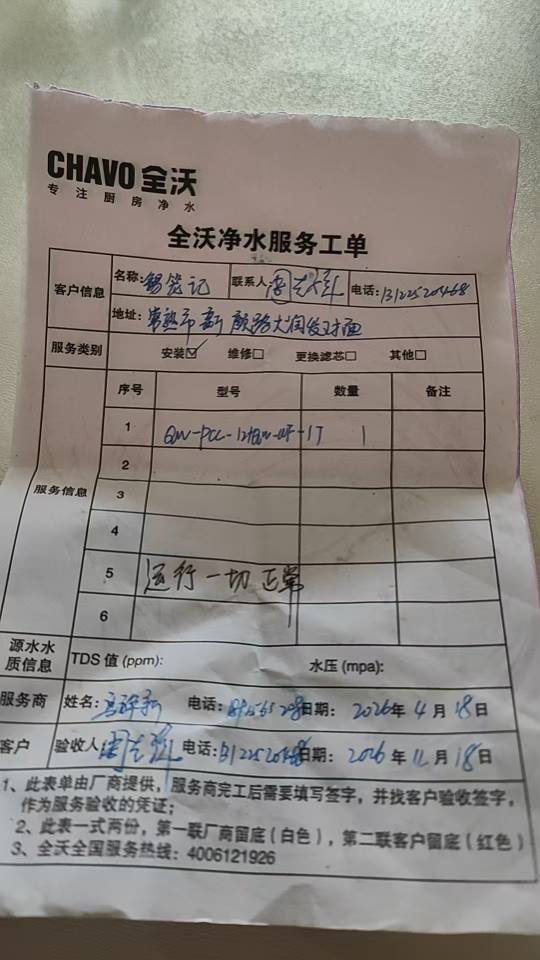 CHAVO 全沃
专注厨房净水
全沃净水服务工单
客户信息 名称: 锡笼记 联系人 周志祥 电话: 13122520468
地址: 常熟市新颜路大润发对面
服务类别 安装☑ 维修□ 更换滤芯□ 其他□
服务信息
序号 型号 数量 备注
1 1
2
3
4
5 运行一切正常
6
源水水质信息 TDS 值 (ppm): 水压 (mpa):
服务商 姓名: 电话: 日期: 2026年4月18日
客户 验收人 周志祥 电话: 日期: 2026年11月18日
1、此表单由厂商提供，服务商完工后需要填写签字，并找客户验收签字，
作为服务验收的凭证；
2、此表一式两份，第一联厂商留底（白色），第二联客户留底（红色）
3、全沃全国服务热线：4006121926